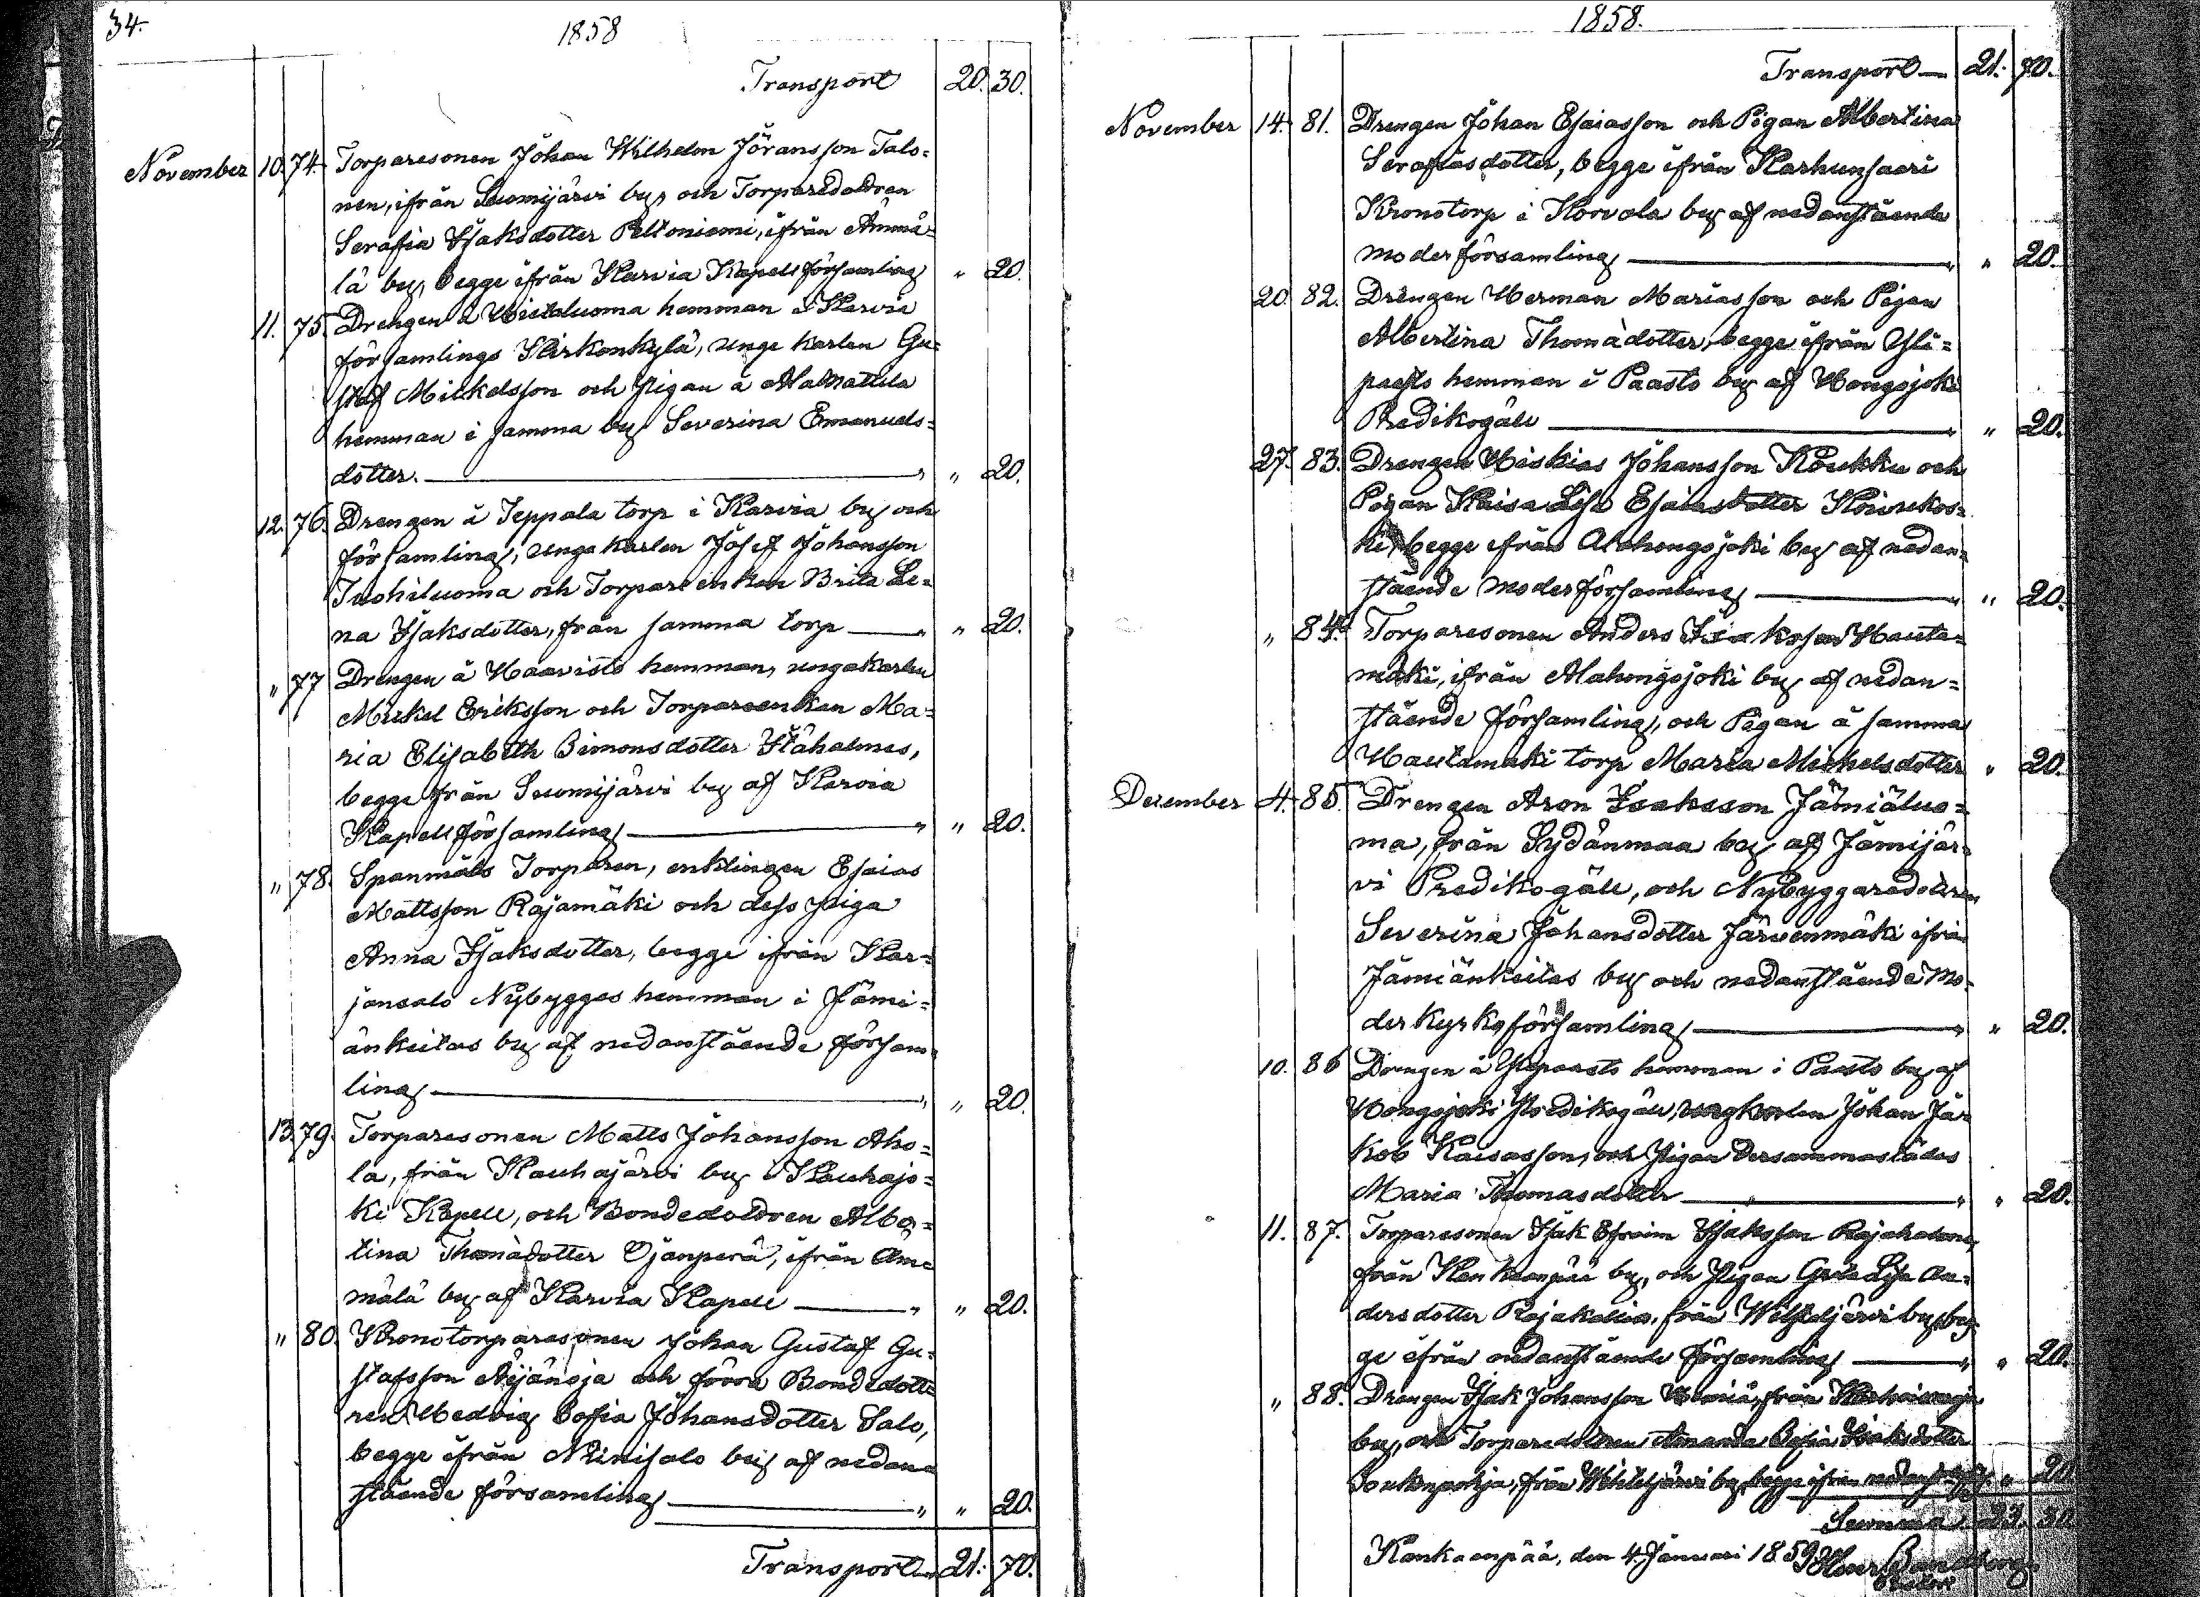 34.
1858
Transport 20. 30.
November 10. 74. Torparesonen Johan Wilhelm Jöransson Talo=
nen, ifrån Suomijärvi by, och Torparedottren
Serafia Isaksdotter Peltoniemi, ifrån Ämmä=
lä by, begge ifrån Karvia Kapellförsamling " 20.
11. 75. Drengen å Wietaluoma hemman i Karvia
församlings Kirkonkylä, unge karlen Gu=
staf Mickelsson och pigan å Alamattila
hemman i samma by Severina Emanuels=
dotter. " " 20.
12. 76. Drengen å Seppala torp i Karvia by och
församling, unge karlen Josef Johansson
Tuohiluoma och Torpareenkan Brita Le=
na Isaksdotter, från samma torp " " 20.
" 77 Drengen å Haavisto hemman, ungakarlen
Mickel Eriksson och Torpareenkan Ma=
ria Elisabeth Simonsdotter Ståhalmes,
begge från Suomijärvi by af Karvia
Kapellförsamling " " 20.
" 78. Spanmåls Torparen, enklingen Esaias
Mattsson Rajamäki och dess piga
Anna Isaksdotter, begge ifrån Kar=
jansalo Nybygges hemman i Jämi=
änkeitas by af nedanstående försam=
ling " " 20.
13. 79. Torparesonen Matts Johansson Aho=
la, från Kauhajärvi by i Kauhajo=
ki Kapell, och Bondedottren Alber=
tina Thomädotter Ojanperä, ifrån Äm=
mälä by af Karvia Kapell " " 20.
" 80. Kronotorparesonen Johan Gustaf Gu=
stafsson Äijänoja och förra Bondedott=
ren Hedvig Sofia Johansdotter Salo,
begge ifrån Niinisalo by af nedan=
stående församling " " 20.
Transport 21. 70.
1858.
Transport 21. 70.
November 14. 81. Drengen Johan Esaiasson och Pigan Albertina
Serafiasdotter, begge ifrån Karhunsaari
Kronotorp i Korvola by af nedanstående
moderförsamling " " 20.
20. 82. Drengen Herman Mariasson och Pigan
Albertina Thomädotter, begge ifrån Yli=
paasto hemman i Paasto by af Hongojoki
Predikogäll " " 20.
27. 83. Drengen Hiskias Johansson Koukku och
Pigan Kaisa Lisa Esaiasdotter Koivukos=
ki, begge ifrån Alahongojoki by af nedan=
stående moderförsamling " " 20.
" 84. Torparesonen Anders Isaksson Hauta=
mäki, ifrån Alahongojoki by af nedan=
stående församling, och Pigan å samma
Hautamäki torp Maria Michelsdotter " 20.
December 4. 85. Drengen Aron Isaksson Jämiäluo=
ma, från Sydänmaa by af Jämijär=
vi Predikogäll, och Nybyggaredottren
Severina Johansdotter Järvenmäki ifrån
Jämiänkeitas by och nedanstående Mo=
derkyrkoförsamling " " 20.
10. 86 Drengen å Ylipaasto hemman i Paasto by af
Hongojoki predikogäll, ungkarlen Johan Ja=
kob Kaisasson, och Pigan dersammastädes
Maria Thomasdotter " " 20.
11. 87. Torparesonen Isak Efraim Isaksson
från Kankaanpää by, och Pigan Greta Lisa An=
dersdotter Rajakallio, från Wihteljärvi by, beg=
ge ifrån nedanstående församling " " 20.
" 88. Drengen Isak Johansson från
by, och Torparedottren Amanda Sofia Isaksdotter
från Wihteljärvi by, begge ifrån " 20
Summa 23. 30
Kankaanpää, den 4 Januari 1859